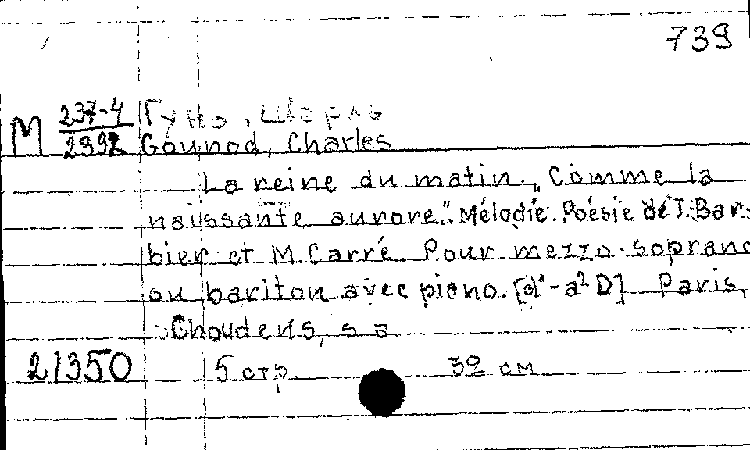 739
M 237-4/2392 Гуно, Шарль
Gounod, Charles
La reine du matin. „Comme la
naissante aurore". Mélodie. Poésie de J. Bar-
bier et M. Carré. Pour mezzo-soprano
ou bariton avec piano. [d¹-a² D] Paris,
Choudens, s a
21350 5 стр. 32 см